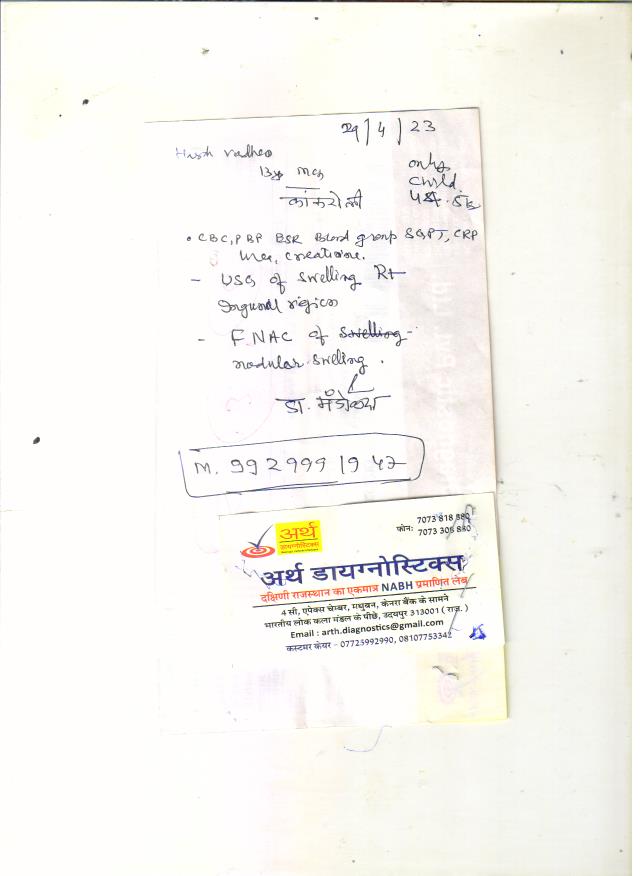 29/4/23
only
child
कांकरोली
• CBC, PBP BSR Blood group SGPT, CRP
Urea, creatinine.
- USG of swelling Rt
Inguinal region
- FNAC of swelling
nodular swelling.
डा.
M. 992999 1947
अर्थ
डायग्नोस्टिक्स
7073 818 880
फोन: 7073 308 880
अर्थ डायग्नोस्टिक्स
दक्षिणी राजस्थान का एकमात्र NABH प्रमाणित लेब
4 सी, एपेक्स चेम्बर, मधुबन, केनरा बैंक के सामने
भारतीय लोक कला मंडल के पीछे, उदयपुर 313001 ( राज. )
Email : arth.diagnostics@gmail.com
कस्टमर केयर - 07725992990, 08107753342